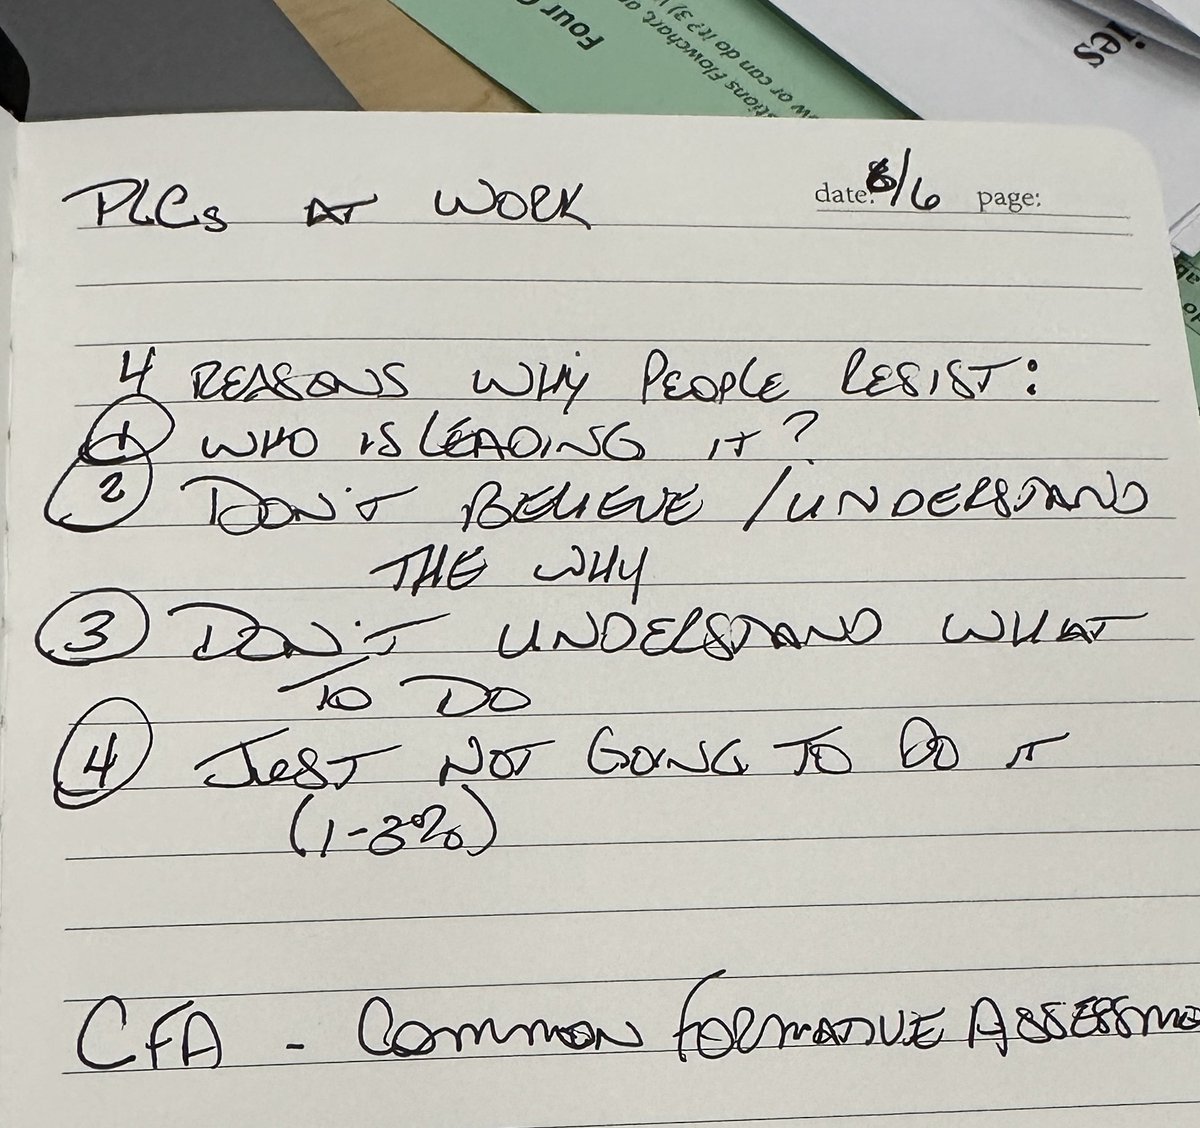 Four
tions Flowchart
w or can do it? 3)
ies
PLCs AT WORK
date: 8/6 page:
4 REASONS WHY PEOPLE RESIST:
1 WHO IS LEADING IT?
2 DON'T BELIEVE / UNDERSTAND
THE WHY
3 DON'T UNDERSTAND WHAT
TO DO
4 JUST NOT GOING TO DO IT
(1-3%)
CFA - COMMON FORMATIVE ASSESSME